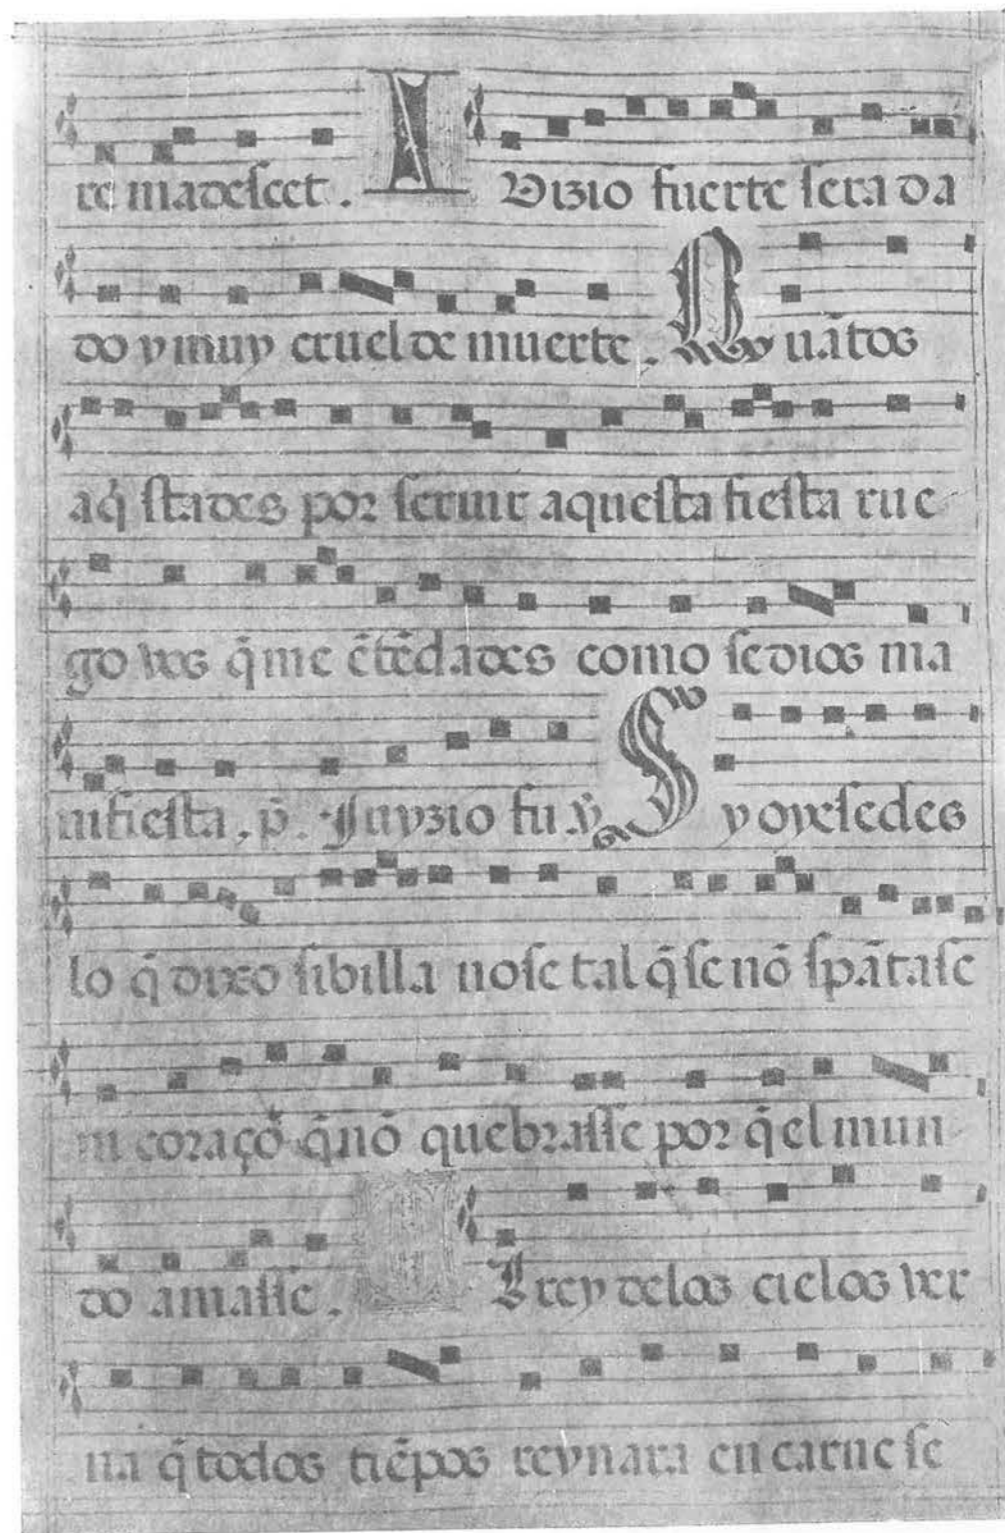 re madescet. I Vizio fuerte sera da
do y muy cruel de muerte. Q uãtos
aq̃ stades por seruir aquesta fiesta rue
go vos q̃ me ẽtẽdades como se dios ma
nifiesta. p̃. Juyzio fu. v̊ S y oyesedes
lo q̃ dixo sibilla no se tal q̃ se nõ spãtase
ni coraçõ q̃ nõ quebrasse por q̃ el mun
do amasse. E l rey delos cielos ver
na q̃ todos tiẽpos reynara en carne se